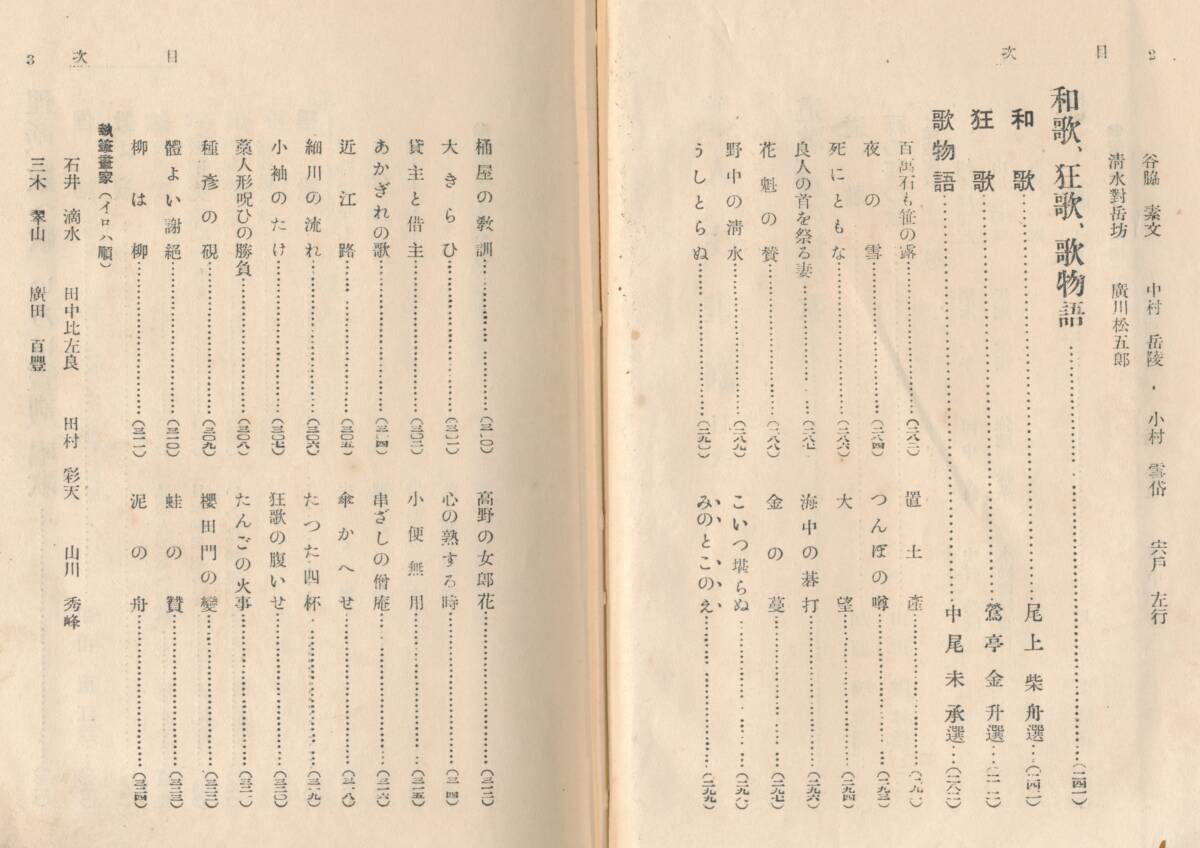 目次 2
谷脇素文 中村岳陵・小村雪岱 宍戸左行
清水對岳坊 廣川松五郎
和歌、狂歌、歌物語……(一四一)
和歌……尾上柴舟選…(一四一)
狂歌……鶯亭金升選…
歌物語……中尾未承選…
百萬石も笹の露……
夜の雪……(二八四)
死にともな……(二八六)
良人の首を祭る妻……(二八七)
花魁の賛……(二八八)
野中の清水……(二八九)
うしとらぬ……
置土產……
つんぼの噂……(二九三)
大望……(二九四)
海中の碁打……(二九六)
金の蔓……(二九七)
こいつ堪らぬ……(二九八)
みのとこのえ……(二九九)
目次 3
桶屋の敎訓……
大きらひ……
貸主と借主……
あかぎれの歌……
近江路……(三〇五)
細川の流れ……(三〇六)
小袖のたけ……(三〇七)
藁人形呪ひの勝負……(三〇八)
種彥の硯……(三〇九)
體よい謝絕……(三一〇)
柳は柳……
高野の女郎花……
心の熟する時……(三一四)
小便無用……(三一五)
串ざしの僧庵……(三一六)
傘かへせ……(三一八)
たつた四杯……(三一九)
狂歌の腹いせ……(三二〇)
たんごの火事……
櫻田門の變……
蛙の賛……(三二三)
泥の舟……(三二四)
執筆畫家(イロハ順)
石井滴水 田中比左良 田村彩天 山川秀峰
三木翠山 廣田百豐